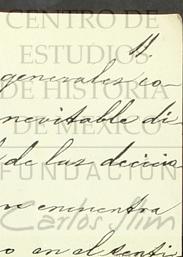 CENTRO DE
ESTUDIOS
DE HISTORIA
DE MÉXICO
FUNDACIÓN
Carlos Slim
11
generales co-
inevitable di
de las decisio
se encuentra
o en el senti